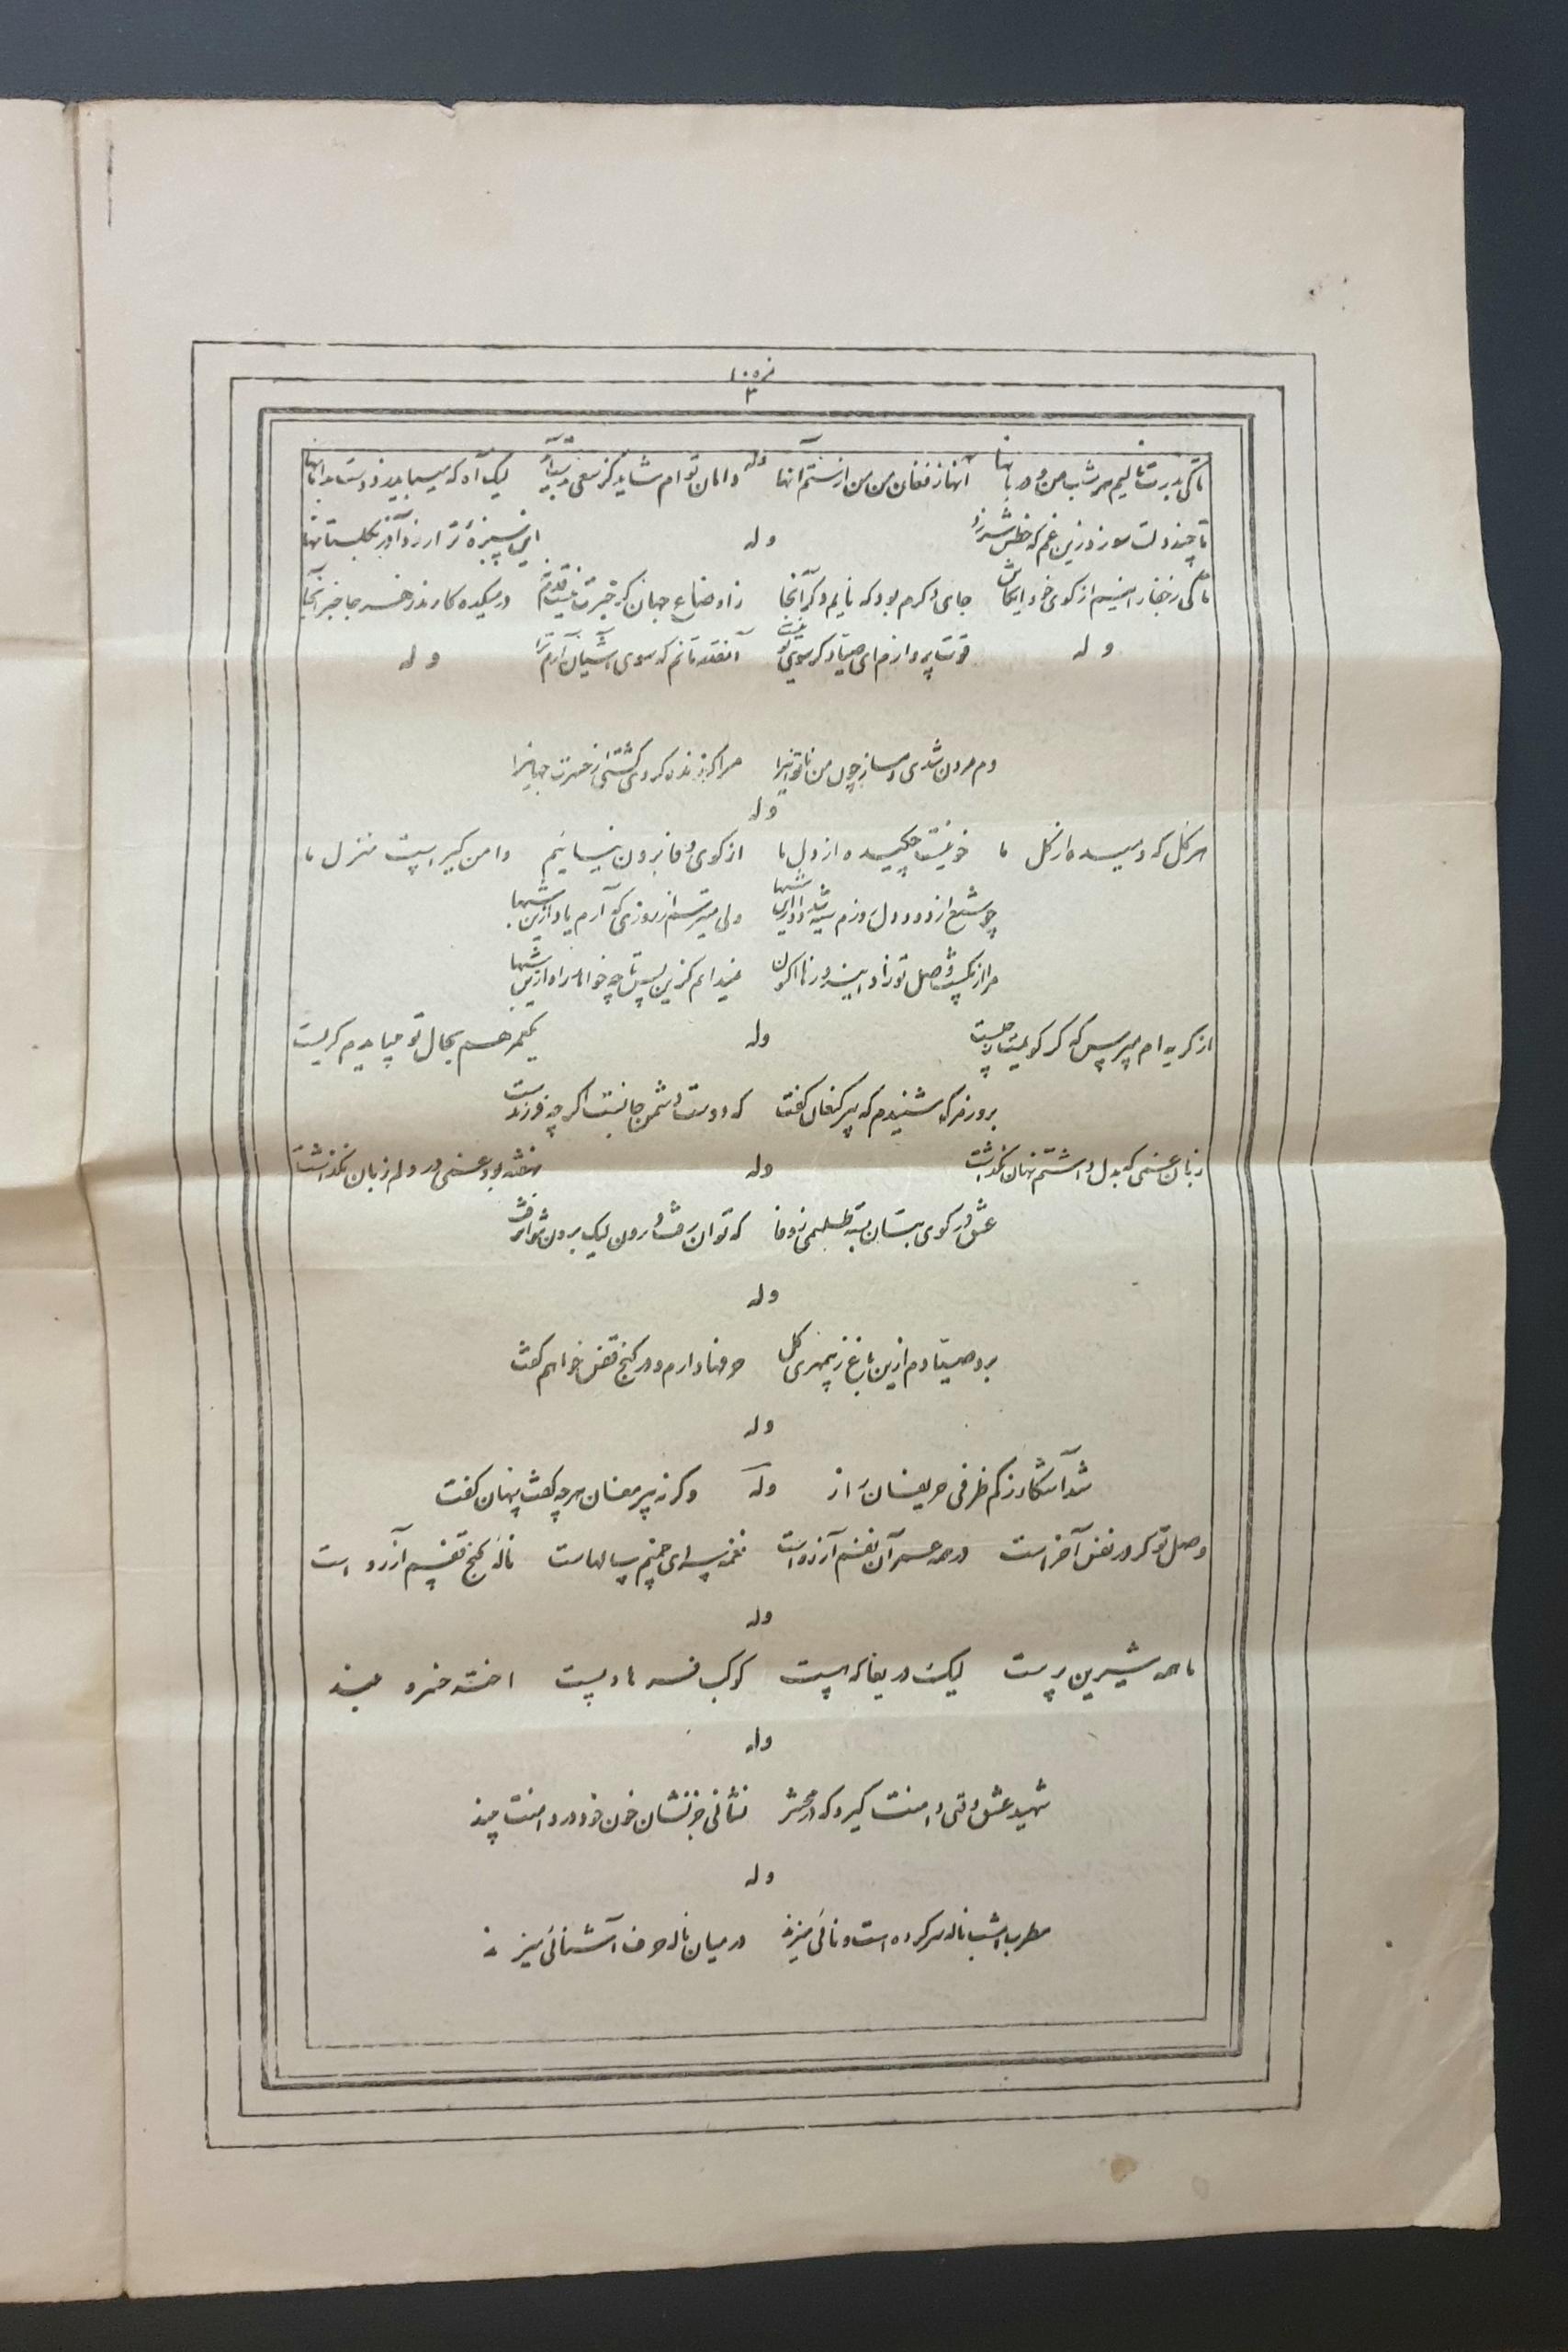 نمره ١٠
٣
تا کی بدرت نالیم هر شب من و دربانها آنها ز فغان من من از ستم آنها وله دامان توام شاید کز سعی بدست آید لیک آه که میباید زد دست بدامانها
تا چند دلت سوزد زین غم که خطش سر زد وله این سبزهٔ تر ارزد آذر بگلستانها
تا کی ز جفا رانیم از کوی خود ایکاش جای دگرم بود که نایم دگر آنجا ز اوضاع جهان در میکده کاندر خبر آنجا
وله قوت پروازم ای صیاد گر سوی تو نیست آنقدر نالم که سوی آشیان آرم ترا وله
دم مردن شدی دمساز چون من ناتوانیرا مرا گر زنده کردی کشتی از حسرت جهانیرا
وله
هر گل که دمیده از گل ما خونیست چکیده از دل ما از کوی وفا برون نیائیم دامن گیر است منزل ما
چو شمع از دود دل روزم سیه شد شبها ولی میترسم از روزی که آرم یاد ازین شبها
مرا وصل تو زاد اینروز تا اکنون نمیدانم کزین پس تا چه خواهد زاد ازین شبها
از گریه ام مپرس که در کویت از چیست وله یکعمر هم بحال تو میبایدم گریست
بروز مرگ شنیدم که پیر کنعان گفت که دوست دشمن جانست اگر چه فرزند است
زبان غمی که بدل داشتم نهان نگذاشت وله نهفته بود غمی در دلم زبان نگذاشت
عشق در کوی بتان بسته طلسمی ز وفا که توان رفت درون لیک برون نتوان رفت
وله
برد صیادم ازین باغ ز بیمهری گل حرفها دارم و در کنج قفس خواهم گفت
وله
شد آشکار ز کم ظرفی حریفان راز وله وگرنه پیر مغان هر چه گفت پنهان گفت
وصل تو گر در نفس آخر است در همه عمر آن نفسم آرزو است نغمه سرای چمنم سالهاست نالهٔ کنج قفسم آرزو است
وله
ما همه شیرین پرست لیک دریغا که هست کوکب فرهاد پست اختر خسرو بلند
وله
شهید عشق وقتی دامنت گیرد که در محشر نشانی جز نشان خون خود در دامنت بیند
وله
مطرب امشب ناله سر کرده است و نائی میزند در میان ناله حرف آشنائی میزند